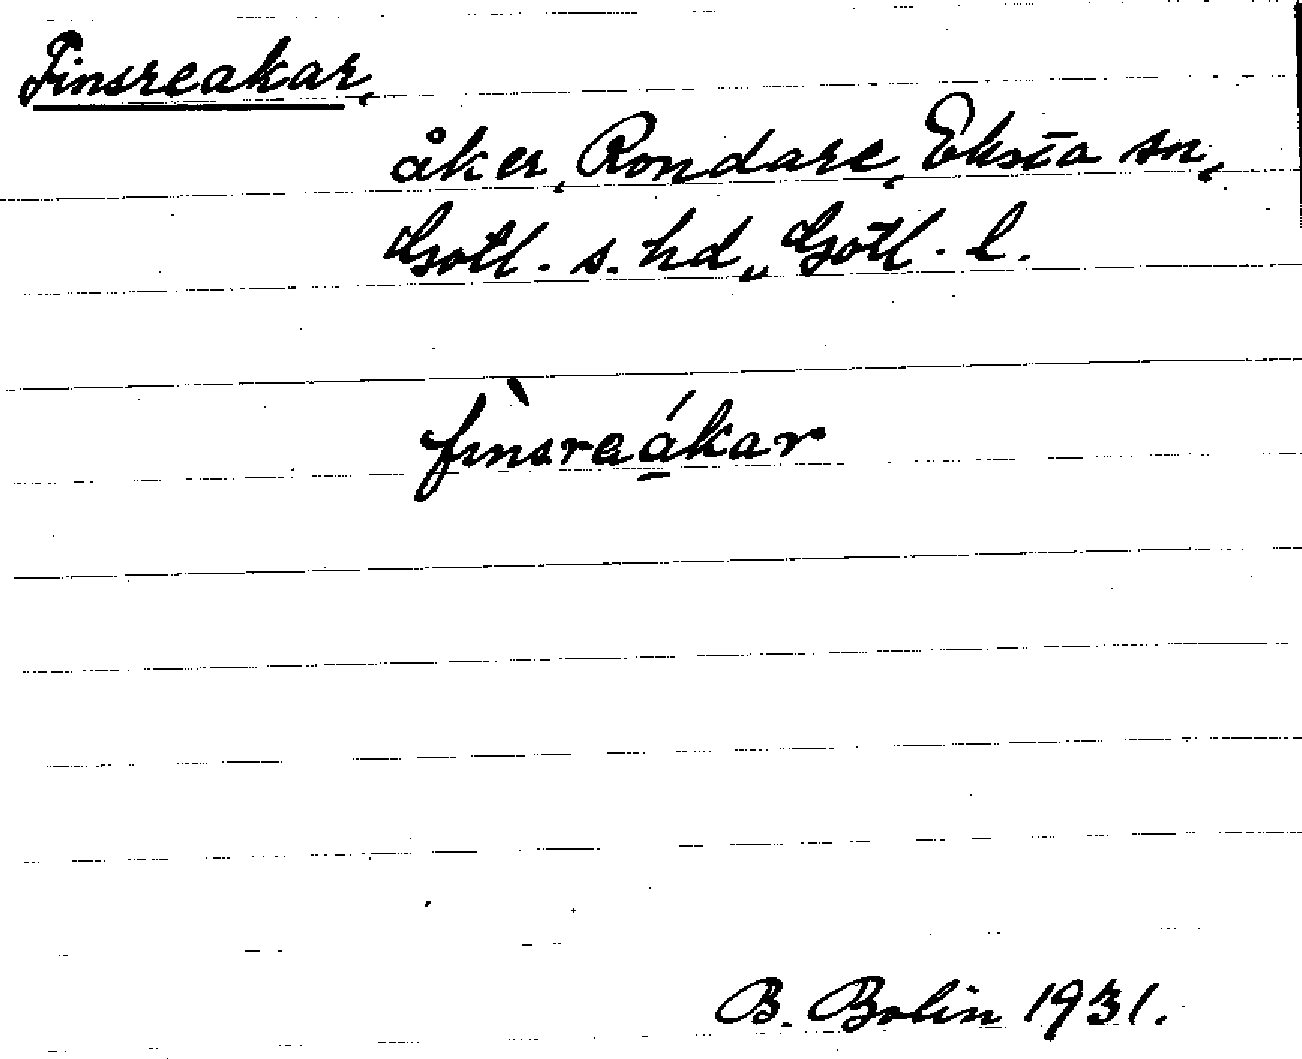 Finsreakar,
åker, Rondare, Eksta sn,
Gotl. s. hd., Gotl. l.
fìnsreákar
B. Bolin 1931.